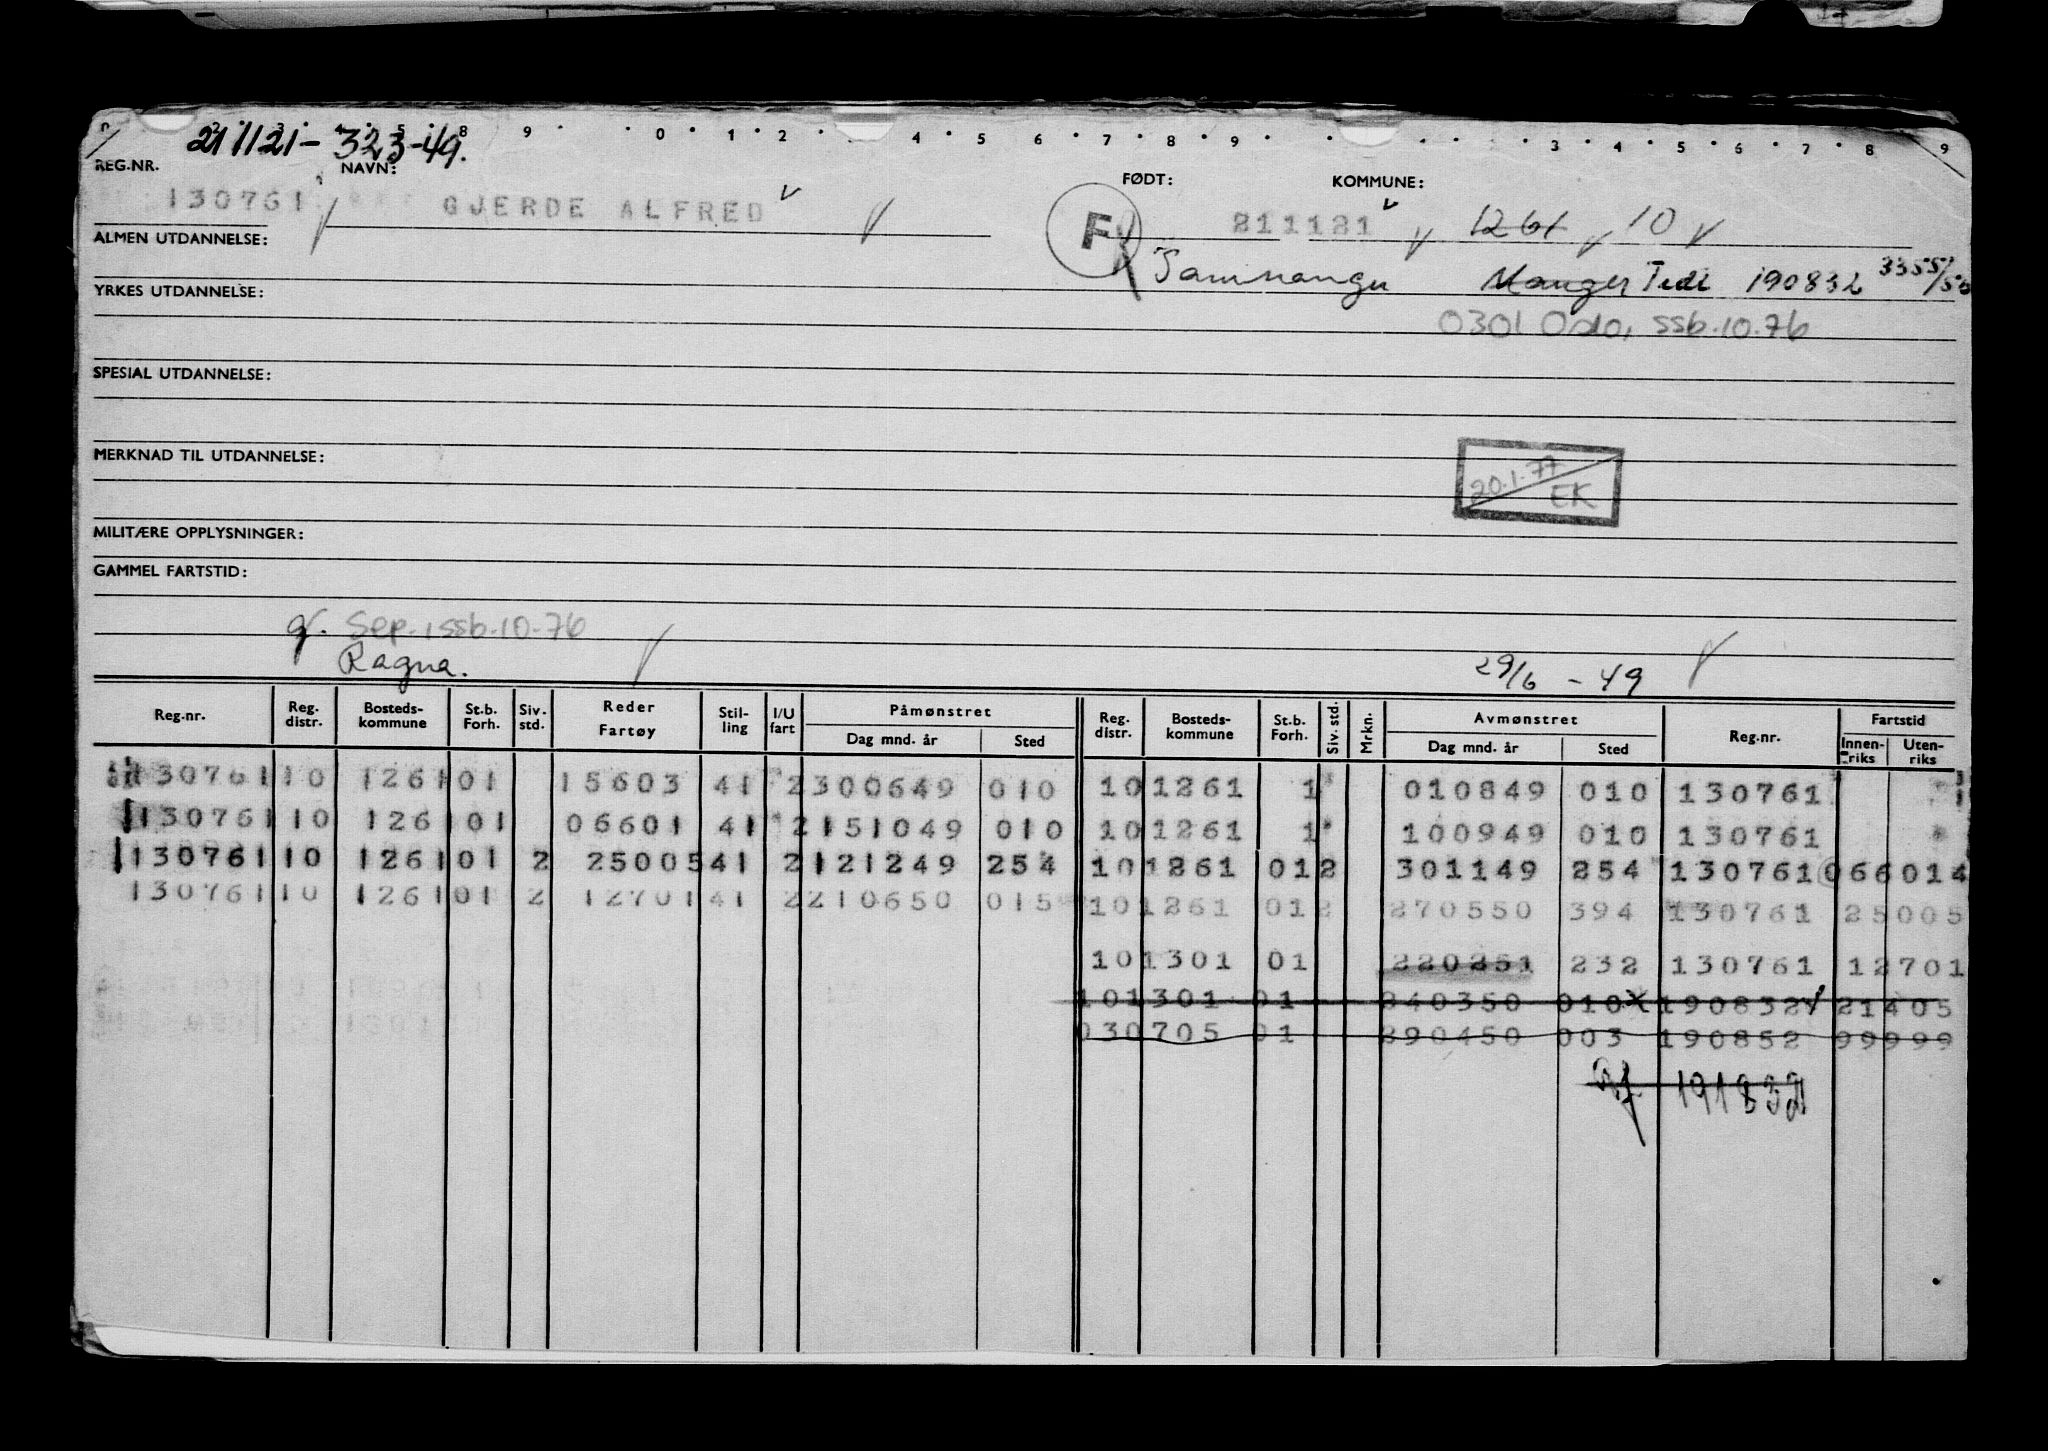 211121-323-49.
9 0 1 2 4 5 6 7 8 9 3 4 5 6 7 8 9
REG.NR. NAVN: FØDT: KOMMUNE:
130761 GJERDE ALFRED F 211121 1261 10
ALMEN UTDANNELSE:
Samnanger Manger Tidl 190832 3355/50
YRKES UTDANNELSE:
0301 Oslo, ssb.10.76
SPESIAL UTDANNELSE:
MERKNAD TIL UTDANNELSE:
20.1.77 EK
MILITÆRE OPPLYSNINGER:
GAMMEL FARTSTID:
gf. Sep. ssb.10-76
Ragna. 29/6 - 49
Reg.nr. Reg. distr. Bosteds- kommune St.b. Forh. Siv. std. Reder Fartøy Stil- ling I/U fart Påmønstret Dag mnd. år Sted Reg. distr. Bosteds- kommune St.b. Forh. Siv. std. Mrkn. Avmønstret Dag mnd. år Sted Reg.nr. Fartstid Innen- riks Uten- riks
130761 10 1261 01 15603 41 2 300649 010 10 1261 1 010849 010 130761
130761 10 1261 01 06601 41 2 151049 010 10 1261 1 100949 010 130761
130761 10 1261 01 2 25005 41 2 121249 254 10 1261 01 2 301149 254 130761 066014
130761 10 1261 01 2 12701 41 2 210650 015 10 1261 01 2 270550 394 130761 25005
10 1301 01 220251 232 130761 12701
10 1301 01 240350 010 190832 21405
03 0705 01 290450 003 190852 99999